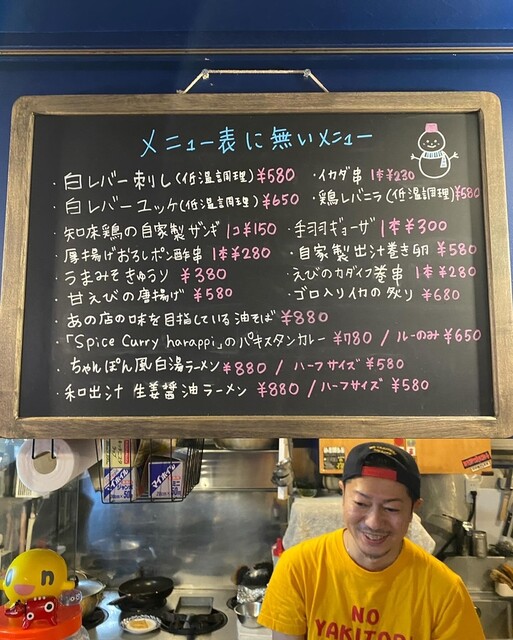 メニュー表に無いメニュー
・白レバー刺し(低温調理)¥580
・白レバーユッケ(低温調理)¥650
・知床鶏の自家製ザンギ 1コ¥150
・厚揚げおろしポン酢串 1本¥280
・うまみそきゅうり ¥380
・甘えびの唐揚げ ¥580
・イカダ串 1本¥230
・鶏レバニラ(低温調理)¥580
・手羽ギョーザ 1本¥300
・自家製出汁巻き卵 ¥580
・えびのカダイフ巻串 1本¥280
・ゴロ入りイカの炙り ¥680
・あの店の味を目指している油そば ¥880
・「Spice Curry harappi」のパキスタンカレー ¥780 / ルーのみ¥650
・ちゃんぽん風白湯ラーメン ¥880 / ハーフサイズ ¥580
・和出汁 生姜醤油ラーメン ¥880 / ハーフサイズ ¥580
NO
YAKITORI